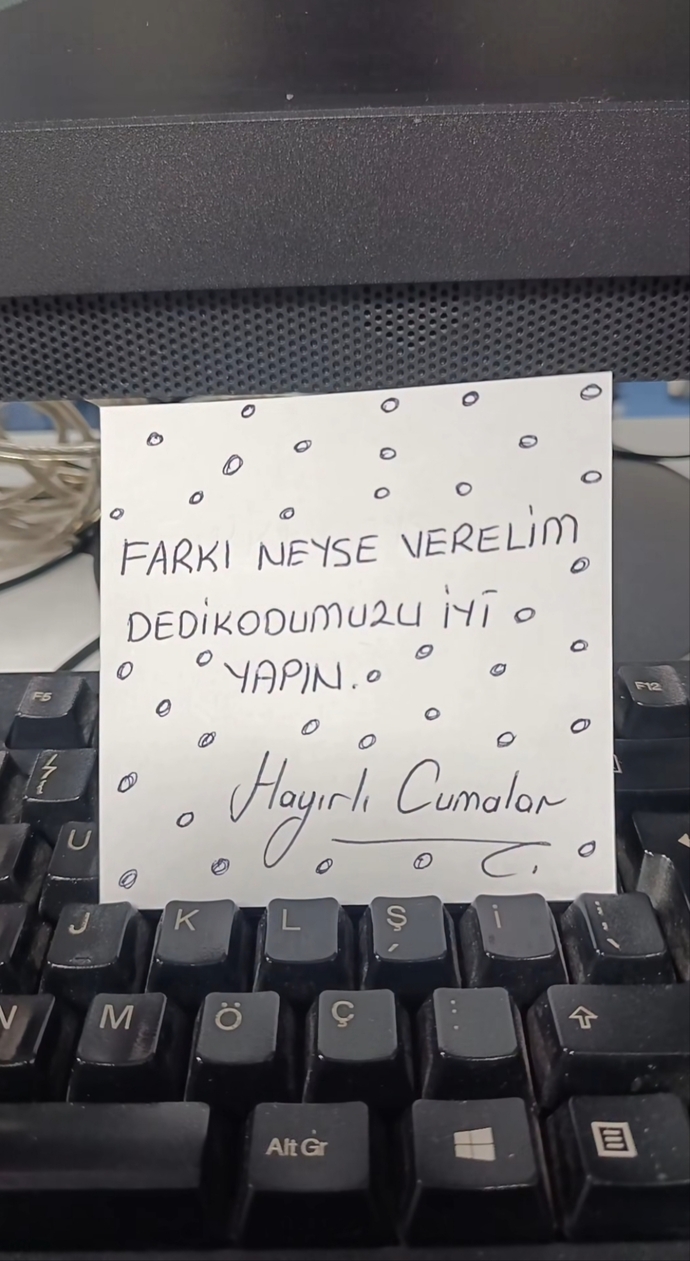 FARKI NEYSE VERELİM
DEDİKODUMUZU İYİ
YAPIN.
Hayırlı Cumalar
F5
F12
U
J
K
L
Ş
İ
M
Ö
Ç
Alt Gr